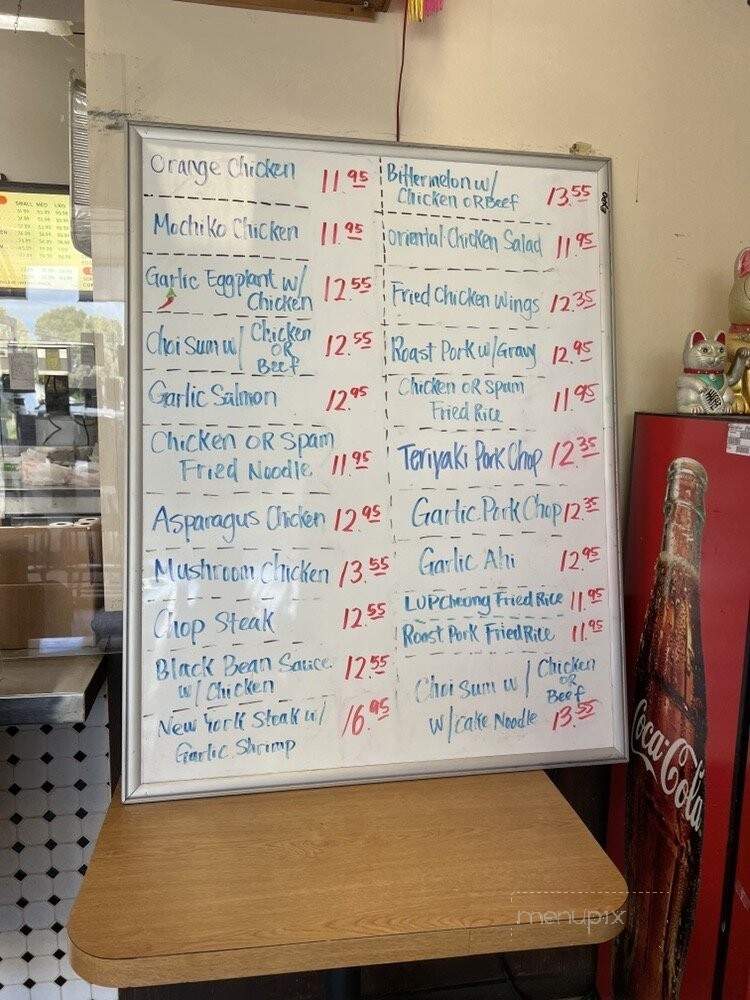 Orange Chicken 11.95
Mochiko Chicken 11.95
Garlic Eggplant w/
Chicken 12.55
Choi Sum w/ Chicken
OR
Beef 12.55
Garlic Salmon 12.95
Chicken OR Spam
Fried Noodle 11.95
Asparagus Chicken 12.95
Mushroom Chicken 13.55
Chop Steak 12.55
Black Bean Sauce
w/ Chicken 12.55
New York Steak w/
Garlic Shrimp 16.95
Bittermelon w/
Chicken OR Beef 13.55
Oriental Chicken Salad 11.95
Fried Chicken Wings 12.35
Roast Pork w/Gravy 12.95
Chicken OR Spam
Fried Rice 11.95
Teriyaki Pork Chop 12.35
Garlic Pork Chop 12.35
Garlic Ahi 12.95
LUP Cheong Fried Rice 11.95
Roast Pork Fried Rice 11.95
Choi Sum w/ Chicken
OR
Beef
w/Cake Noodle 13.55
SMALL MED LRG
Coca-Cola
menupix